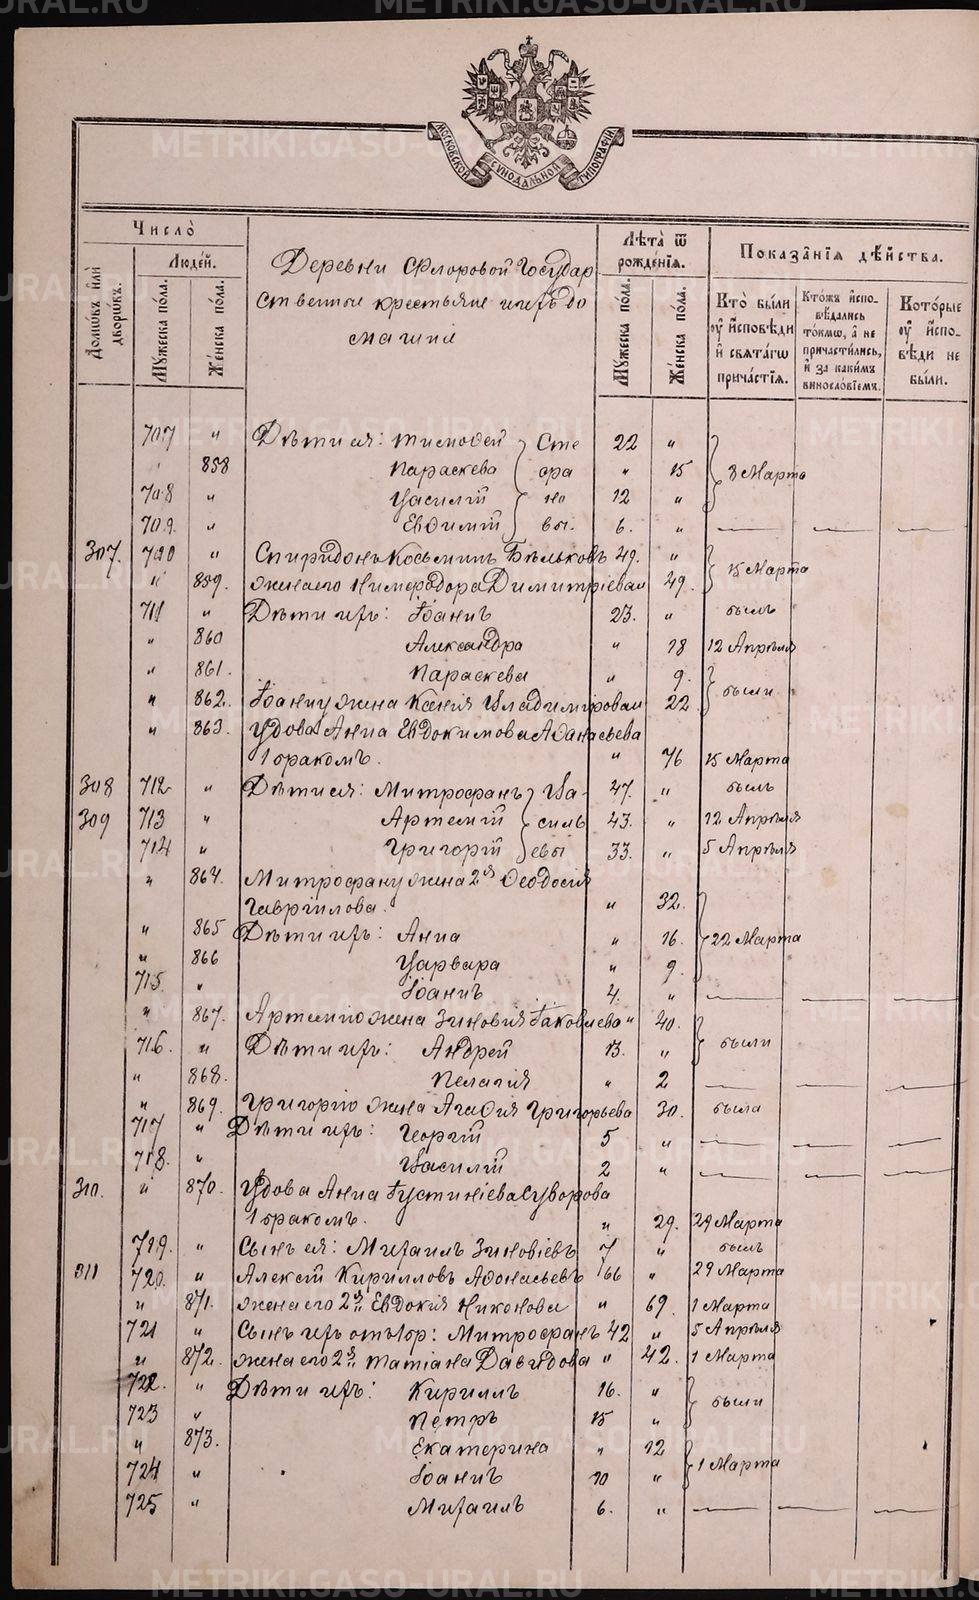 METRIKI.GASO-URAL.RU
МОСКОВСКОЙ СѴНОДАЛЬНОЙ ТИПОГРАФІИ
Число̀
Домѡ́въ и҆лѝ дворѡ́въ.
Люде́й.
Мꙋ́жеска по́ла.
Же́нска по́ла.
Деревни Флоровой Государ
ственные крестьяне и ихъ до
машніе
Лѣта̀ ѿ рожде́нїѧ.
Мꙋ́жеска по́ла.
Же́нска по́ла.
Показа̂нїѧ дѣ́йства.
Кто̀ бы́ли ᲂу҆ и҆сповѣ́ди и҆ свѧта́гѡ прича́стїѧ.
Кто́жъ и҆спо-вѣ́дались то́кмѡ, а҆ не причасти́лись, и҆ за каки́мъ винносло́вїемъ.
Кото́рые ᲂу҆ и҆спо-вѣ́ди не бы́ли.
707 " Дѣти ея: Тимофей Сте 22 "
" 858 Параскева фа " 15 8 Марта
708 " Василій но 12 "
709. " Евфимій вы. 6. " — — —
307. 710 " Спиридонъ Косьминъ Бѣльковъ 49. "
" 859. жена его Нимфодора Димитріева " 49. 15 Марта
711 " Дѣти ихъ: Іоаннъ 23. " былъ
" 860 Александра " 18 12 Апрѣля
" 861. Параскева " 9.
" 862. Іоанну жена Ксенія Владимірова " 22 были
" 863. Вдова Анна Евдокимова Афанасьева
1 бракомъ. " 76 15 Марта
308 712 " Дѣти ея: Митрофанъ Ва- 47. " былъ
309 713 " Артемій силь 43. " 12 Апрѣля
714 " Григорій евы 33. " 5 Апрѣля
" 864. Митрофану жена 2я Феодосія
Гавріилова. " 32.
" 865 Дѣти ихъ: Анна " 16. 22 Марта
" 866 Варвара " 9.
715. " Іоаннъ 4. " — — —
" 867. Артемію жена Зиновія Іаковлева " 40.
716. " Дѣти ихъ: Андрей 13. " были
" 868. Пелагія " 2 — — —
" 869. Григорію жена Агафія Григорьева 30. была
717 " Дѣти ихъ: Георгій 5 " — — —
718. " Василій 2 " — — —
310. " 870. Вдова Анна Іустиніева Суворова
1 бракомъ. " 29. 29 Марта
719. " Сынъ ея: Михаилъ Зиновіевъ 7 " былъ
311 720. " Алексій Кирилловъ Афонасьевъ 66 " 29 Марта
" 871. жена его 2я Евдокія Никонова " 69. 1 Марта
721 " Сынъ ихъ отъ 1бр: Митрофанъ 42 " 5 Апрѣля
" 872. жена его 2я Татіана Давидова " 42. 1 Марта
722. " Дѣти ихъ: Кириллъ 16. "
723 " Петръ 15 " были
" 873. Екатерина " 12
724 " Іоаннъ 10 " 1 Марта
725 " Михаилъ 6. " — — —